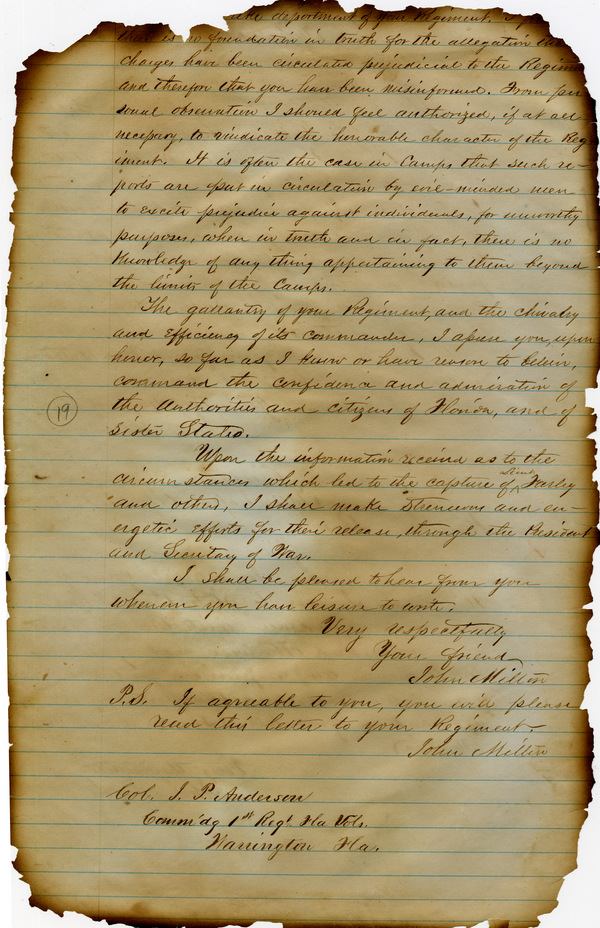 the department of your Regiment.
that is no foundation in truth for the allegation
charges have been circulated prejudicial to the Regime
and therefore that you have been misinformed. From per
sonal observation I should feel authorized, if at all
necessary, to vindicate the honorable character of the Reg
iment. It is often the case in Camps that such re-
ports are put in circulation by evil-minded men
to excite prejudice against individuals, for unworthy
purposes, when in truth and in fact, there is no
knowledge of any thing appertaining to them beyond
the limits of the Camps.
The gallantry of your Regiment, and the chivalry
and efficiency of its commander, I assure you, upon
honor, so far as I know or have reason to believe,
command the confidence and admiration of
the Authorities and citizens of Florida, and of
19
Sister States.
Upon the information received as to the
circumstances which led to the capture of Lieut Farley
and others, I shall make strenuous and en-
ergetic efforts for their release, through the President
and Secretary of War.
I shall be pleased to hear from you
whenever you have leisure to write.
Very respectfully
Your friend
John Milton
P.S. If agreeable to you, you will please
read this letter to your Regiment.
John Milton
Col. J. P. Anderson
Comm'dg 1st Regt. Fla Vols.
Warrington Fla.